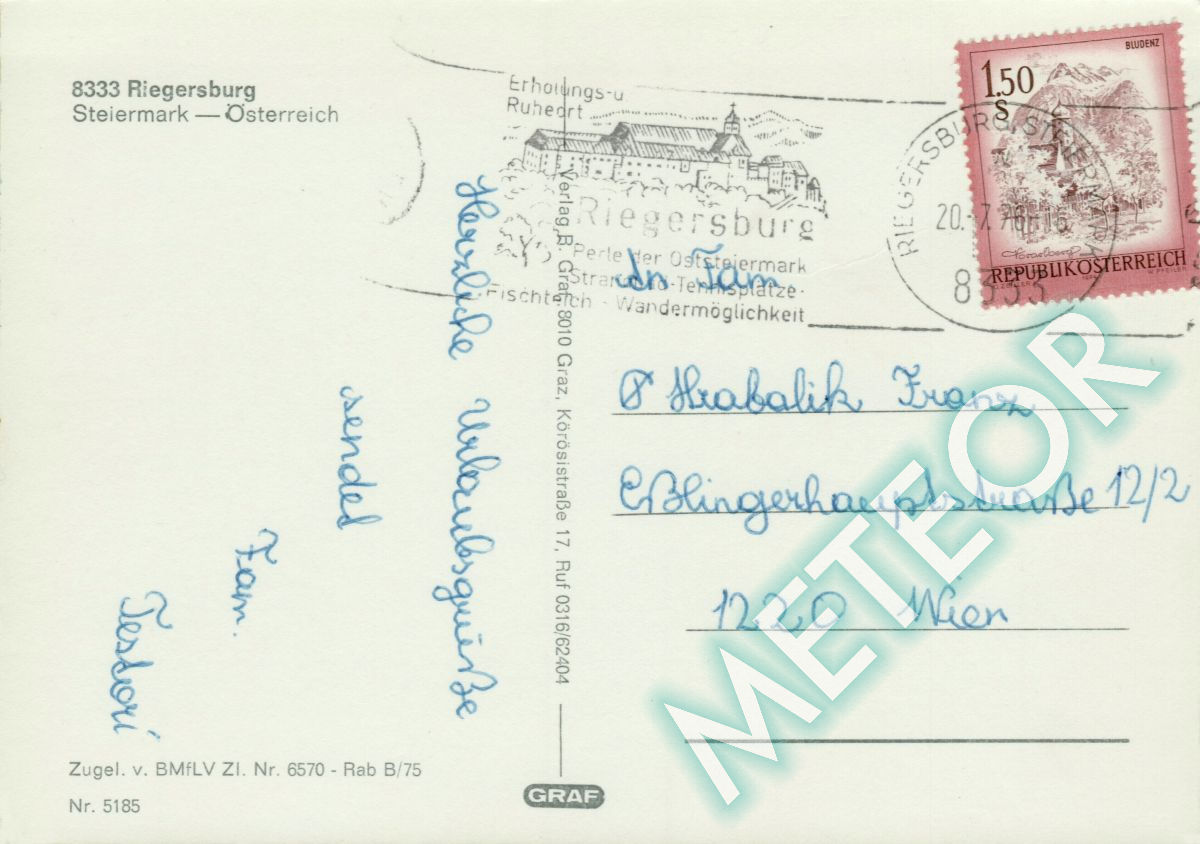 8333 Riegersburg
Steiermark — Österreich
Erholungs-u
Ruheort
Riegersburg
Perle der Oststeiermark
Strandbad-Tennisplätze-
Fischteich - Wandermöglichkeit
RIEGERSBURG, STEIERMARK
20.-7.76-16
8333
BLUDENZ
1.50
S
Vorarlberg
REPUBLIK ÖSTERREICH
Herzliche Urlaubsgrüße
sendet
Fam.
Testori
Verlag B. Graf, 8010 Graz, Körösistraße 17, Ruf 0316/62404
An Fam.
Hrabalik Franz
Eßlingerhauptstraße 12/2
1220 Wien
METEOR
Zugel. v. BMfLV Zl. Nr. 6570 - Rab B/75
Nr. 5185
GRAF